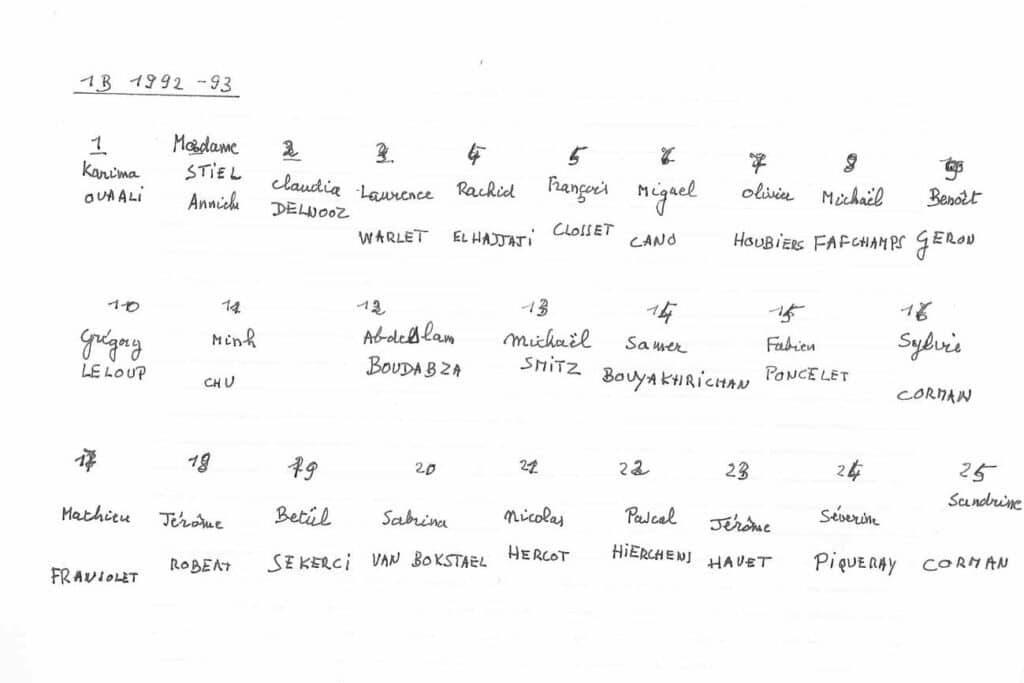 1B 1992 -93
1 Madame 2 3 4 5 6 7 8 9
Karima STIEL Claudia Laurence Rachid François Miguel Olivier Michaël Benoît
OUAALI Annick DELNOOZ WARLET EL HAJJAJI CLOSSET CANO HOUBIERS FAFCHAMPS GERON
10 11 12 13 14 15 16
Grégory Minh Abdeslam Michaël Samer Fabien Sylvie
LELOUP CHU BOUDABZA SMITZ BOUYAKHRICHAN PONCELET CORMAN
17 18 19 20 21 22 23 24 25
Mathieu Jérôme Betül Sabrina Nicolas Pascal Jérôme Séverin Sandrine
ROBERT SEKERCI VAN BOKSTAEL HERCOT HIERCHENS HAVET PIQUERAY CORMAN